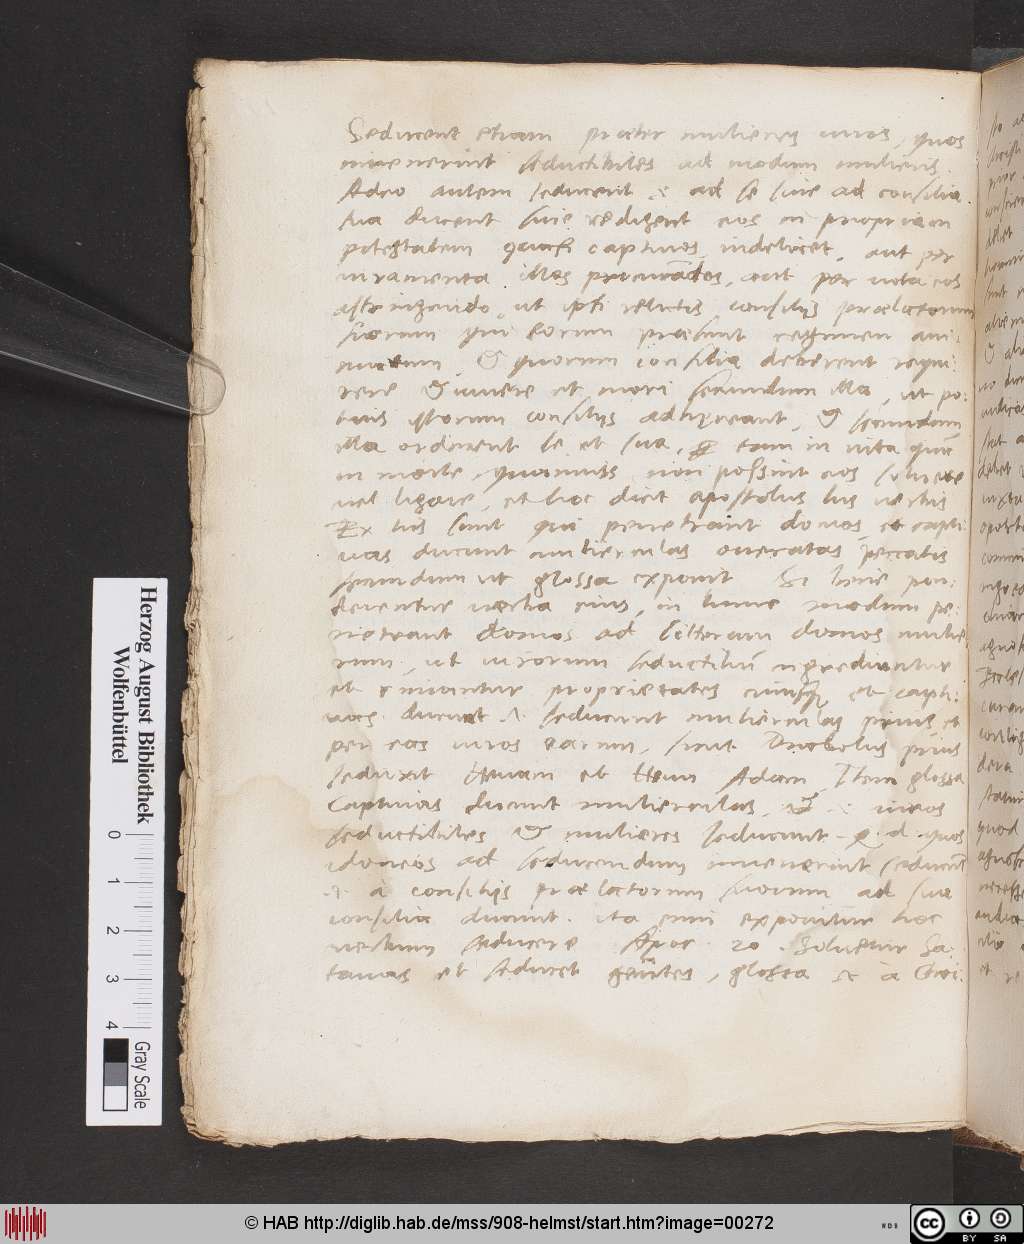 Seducent etiam præter mulieres viros, quos
invenerint seductibiles ad modum mulieris.
Adeo autem seducent .i. ad se sive ad consilia
sua ducent sive redigent eos in propriam
potestatem quasi captivos, videlicet, aut per
iuramenta illos procurãdos, aut per vota eos
astringendo, ut ipsi relictis consilijs prælatorum
suorum qui eorum præsunt regimen ani-
marum, & quorum consilia deberent requi-
rere & vivere et mori secundum illa, ut po-
tius istorum consilijs adhæreant, & secundum
illa ordinent se et sua, tam in vita quã
in morte, quamvis non possint eos solvere
vel ligare, et hoc dicit apostolus his verbis
Ex his sunt qui penetrant domos, et capti-
vas ducunt mulierculas oneratas peccatis
secundum ut glossa exponit Si bene pon-
derentur verba eius, in hunc modum pe-
netrant domos ad litteram domos mulie-
rum, ut virorum seductibiliũ ingrediuntur
et rimantur proprietates cuiusq; et capti-
vas ducunt .i. seducunt mulierculas prius et
per eas viros earum, sicut Diabolus prius
seduxit Hevam et Heva Adam, Item glossa
Captivas ducunt mulierculas, & viros
seductibiles & mulieres seducunt q. d. quos
idoneos ad seducendum invenerint seducũt
.i. à consilijs prælatorum suorum ad sua
consilia ducunt. ita enim exponitur hoc
verbum seducere Apoc. 20. Solvetur Sa-
tanas et seducet gẽtes, glossa sc. à Chri-
Herzog August Bibliothek
Wolfenbüttel
0 1 2 3 4
Gray Scale
© HAB http://diglib.hab.de/mss/908-helmst/start.htm?image=00272
WDB
cc BY SA